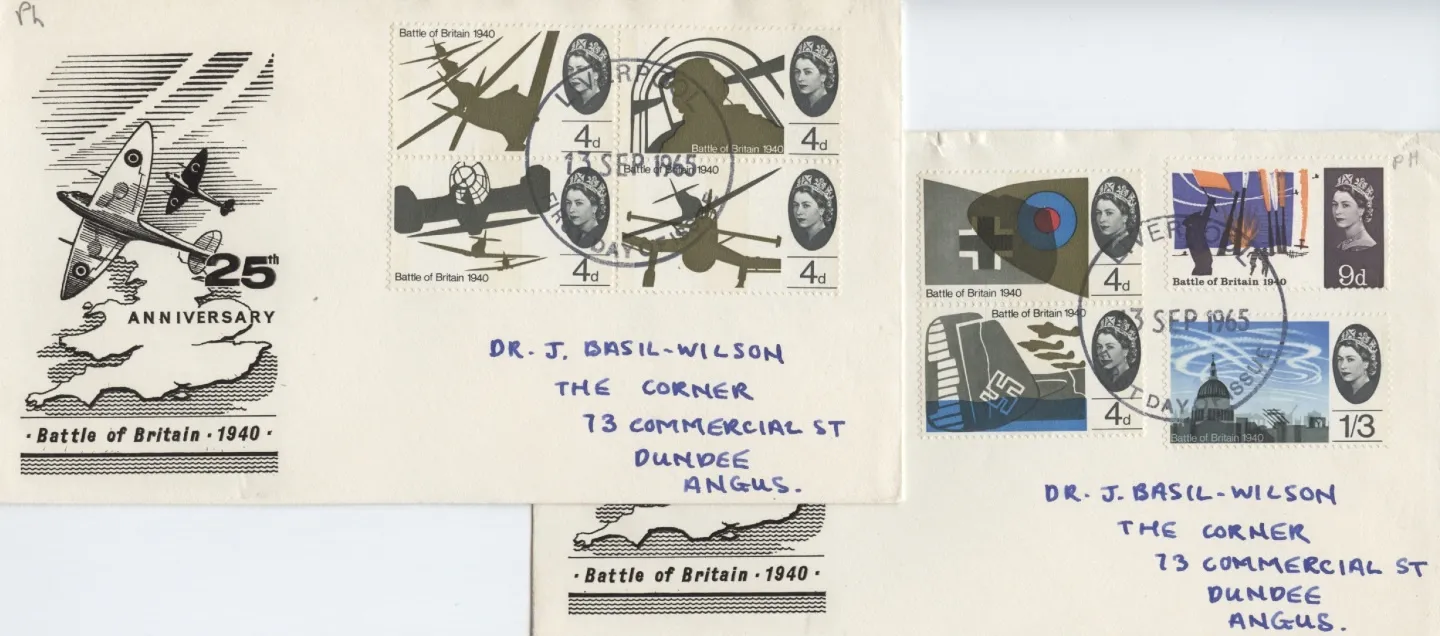 Ph
Battle of Britain 1940
4d
Battle of Britain 1940
4d
Battle of Britain 1940
4d
Battle of Britain 1940
4d
LIVERPOOL
13 SEP 1965
FIRST DAY OF ISSUE
25th
ANNIVERSARY
· Battle of Britain · 1940 ·
DR. J. BASIL-WILSON
THE CORNER
73 COMMERCIAL ST
DUNDEE
ANGUS.
PH
Battle of Britain 1940
4d
Battle of Britain 1940
9d
Battle of Britain 1940
4d
Battle of Britain 1940
1/3
LIVERPOOL
13 SEP 1965
FIRST DAY OF ISSUE
DR. J. BASIL-WILSON
THE CORNER
73 COMMERCIAL ST
DUNDEE
ANGUS.
· Battle of Britain · 1940 ·